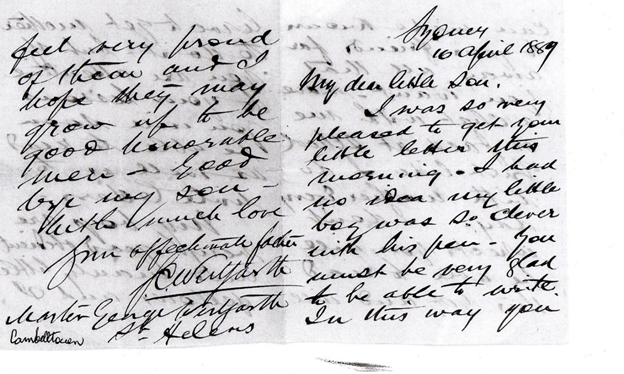 Sydney
10 April 1889
My dear little son.
I was so very
pleased to get your
little letter this
morning. I had
no idea my little
boy was so clever
with his pen - You
must be very glad
to be able to write.
In this way you
feel very proud
of them and I
hope they may
grow up to be
good honorable
men - Good
bye my son -
With much love
from affectionate father
Master George
St Helens
Cambelltown